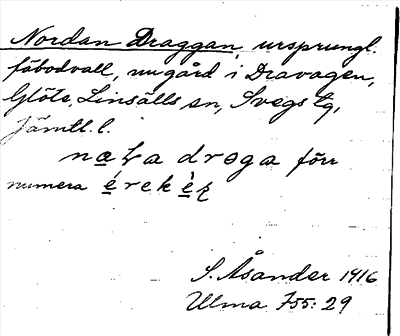 Nordan Draggan, ursprungl.
fäbodvall, nu gård i Dravagen,
Glöte, Linsälls sn, Svegs tg,
Jämtl. l.
droga förr
numera
S. Åsander 1916
Ulma 755:29